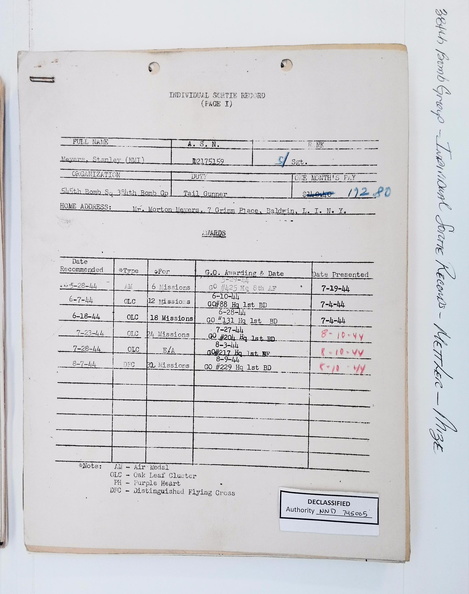 INDIVIDUAL SORTIE RECORD
(PAGE I)
FULL NAME A. S. N.
Meyers, Stanley (NMI) 12175159 S/ Sgt.
ORGANIZATION DUTY ONE MONTH'S PAY
545th Bomb Sq 384th Bomb Gp Tail Gunner 172.80
HOME ADDRESS: Mr. Morton Meyers, 7 Place, Baldwin, L. I. N. Y.
AWARDS
Date
Recommended *Type *For G.O. Awarding & Date Date Presented
5-28-44 AM 6 Missions GO #425 Hq 8th AF 7-19-44
6-10-44
6-7-44 OLC 12 Missions GO#88 Hq 1st BD 7-4-44
6-28-44
6-18-44 OLC 18 Missions GO #131 Hq 1st BD 7-4-44
7-27-44
7-21-44 OLC 24 Missions GO #204 Hq 1st BD 8-10-44
8-3-44
7-28-44 OLC E/A GO#217 Hq 1st 8-10-44
8-9-44
8-7-44 DFC Missions GO #229 Hq 1st BD 8-10-44
*Note: AM - Air Medal
OLC - Oak Leaf Cluster
PH - Purple Heart
DFC - Distinguished Flying Cross
DECLASSIFIED
Authority NND 745005
384th Bomb Group - Individual Sortie Records - Mettler - Mize